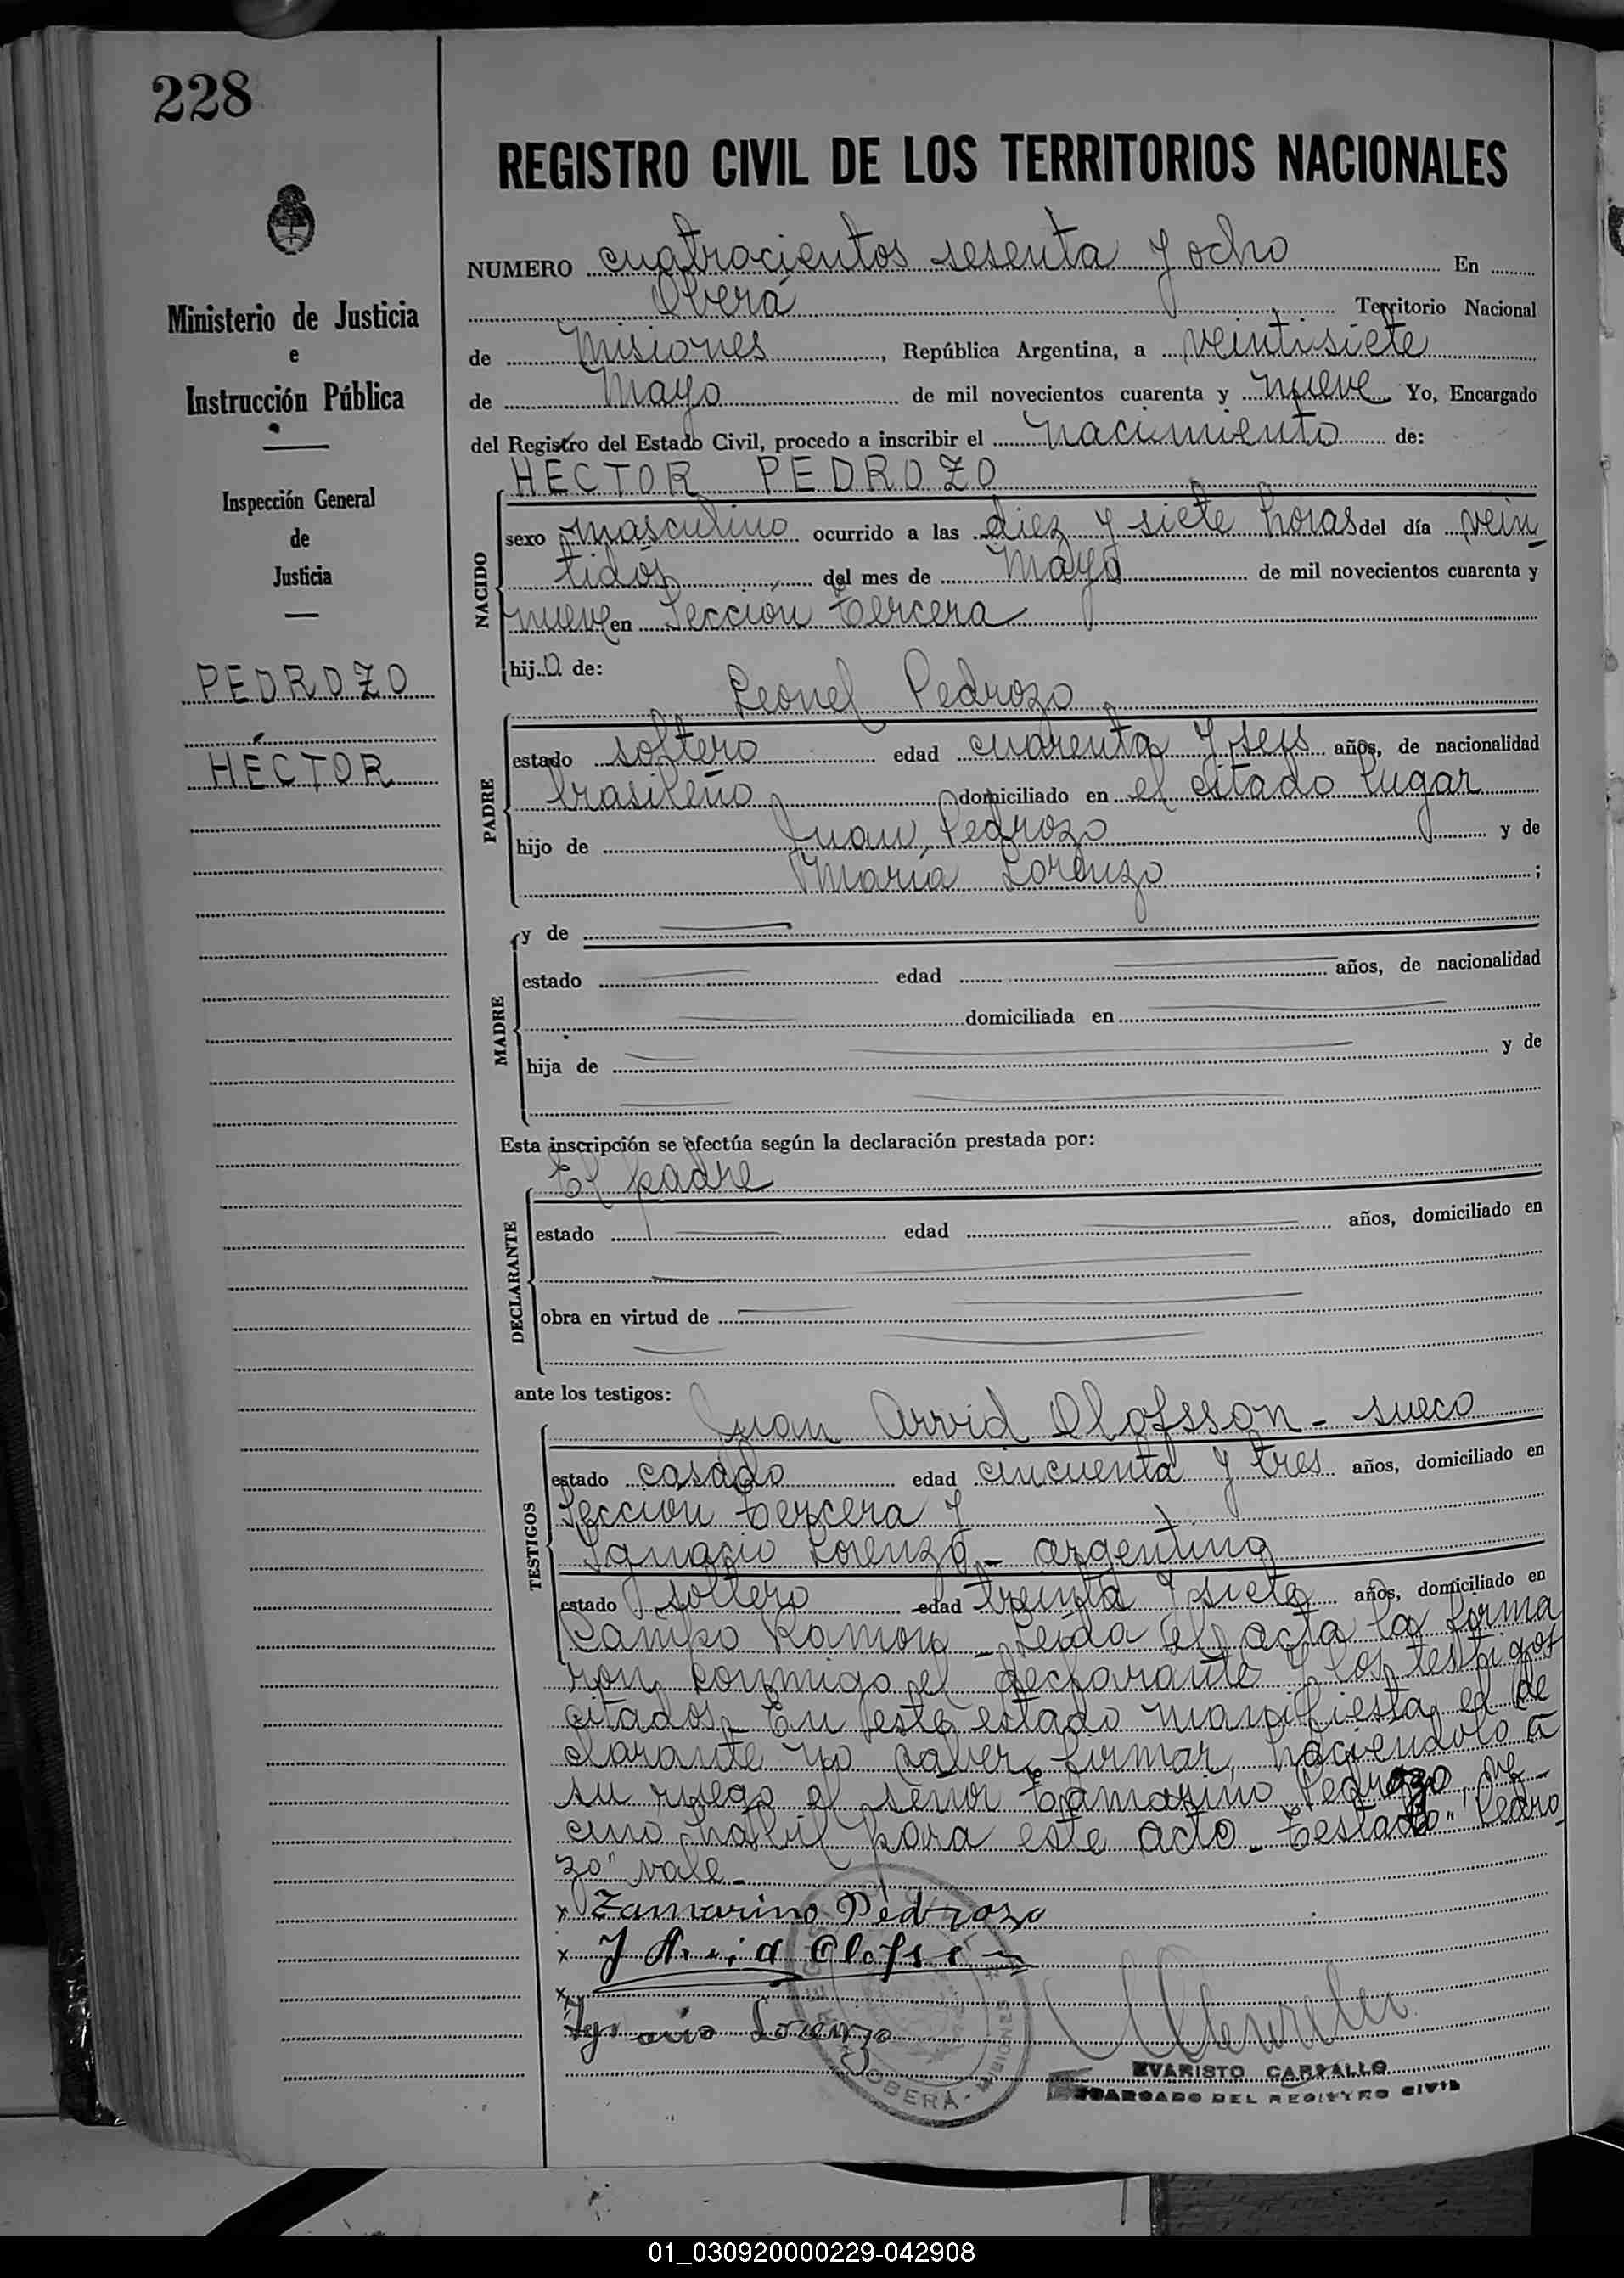 228
REGISTRO CIVIL DE LOS TERRITORIOS NACIONALES
Ministerio de Justicia
e
Instrucción Pública
Inspección General
de
Justicia
PEDROZO
HÉCTOR
NUMERO cuatrocientos sesenta y ocho En
Oberá Territorio Nacional
de Misiones, República Argentina, a veintisiete
de Mayo de mil novecientos cuarenta y nueve Yo, Encargado
del Registro del Estado Civil, procedo a inscribir el nacimiento de:
HECTOR PEDROZO
NACIDO
sexo masculino ocurrido a las diez y siete horas del día vein
tidós del mes de Mayo de mil novecientos cuarenta y
nueve en Sección tercera
hijo de:
Leonel Pedrozo
PADRE
estado soltero edad cuarenta y seis años, de nacionalidad
brasileño domiciliado en el citado lugar
hijo de Juan Pedrozo y de
María Lorenzo ;
MADRE
y de
estado edad años, de nacionalidad
domiciliada en
hija de y de
Esta inscripción se efectúa según la declaración prestada por:
El padre
DECLARANTE
estado edad años, domiciliado en
obra en virtud de
ante los testigos:
Juan Arvid Olofsson - sueco
TESTIGOS
estado casado edad cincuenta y tres años, domiciliado en
Sección tercera y
Ignacio Lorenzo - argentino
estado soltero edad treinta y siete años, domiciliado en
Campo Ramon - Leída el acta la firma
ron conmigo el declarante y los testigos
citados - En este estado manifiesta el de
clarante no saber firmar, haciendolo a
su ruego el señor Zamarino Pedrozo, ve-
cino habil para este acto - Testado "Pedro
zo" vale -
x Zamarino Pedrozo
x J Arvid Olofsson
x
Ignacio Lorenzo
OBERÁ - MISIONES
EVARISTO CARVALLO
ENCARGADO DEL REGISTRO CIVIL
01_030920000229-042908